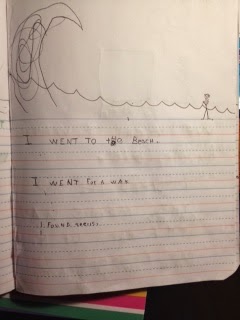 I WENT TO the BEACH.
I WENT FOR A WAK
I FOUND